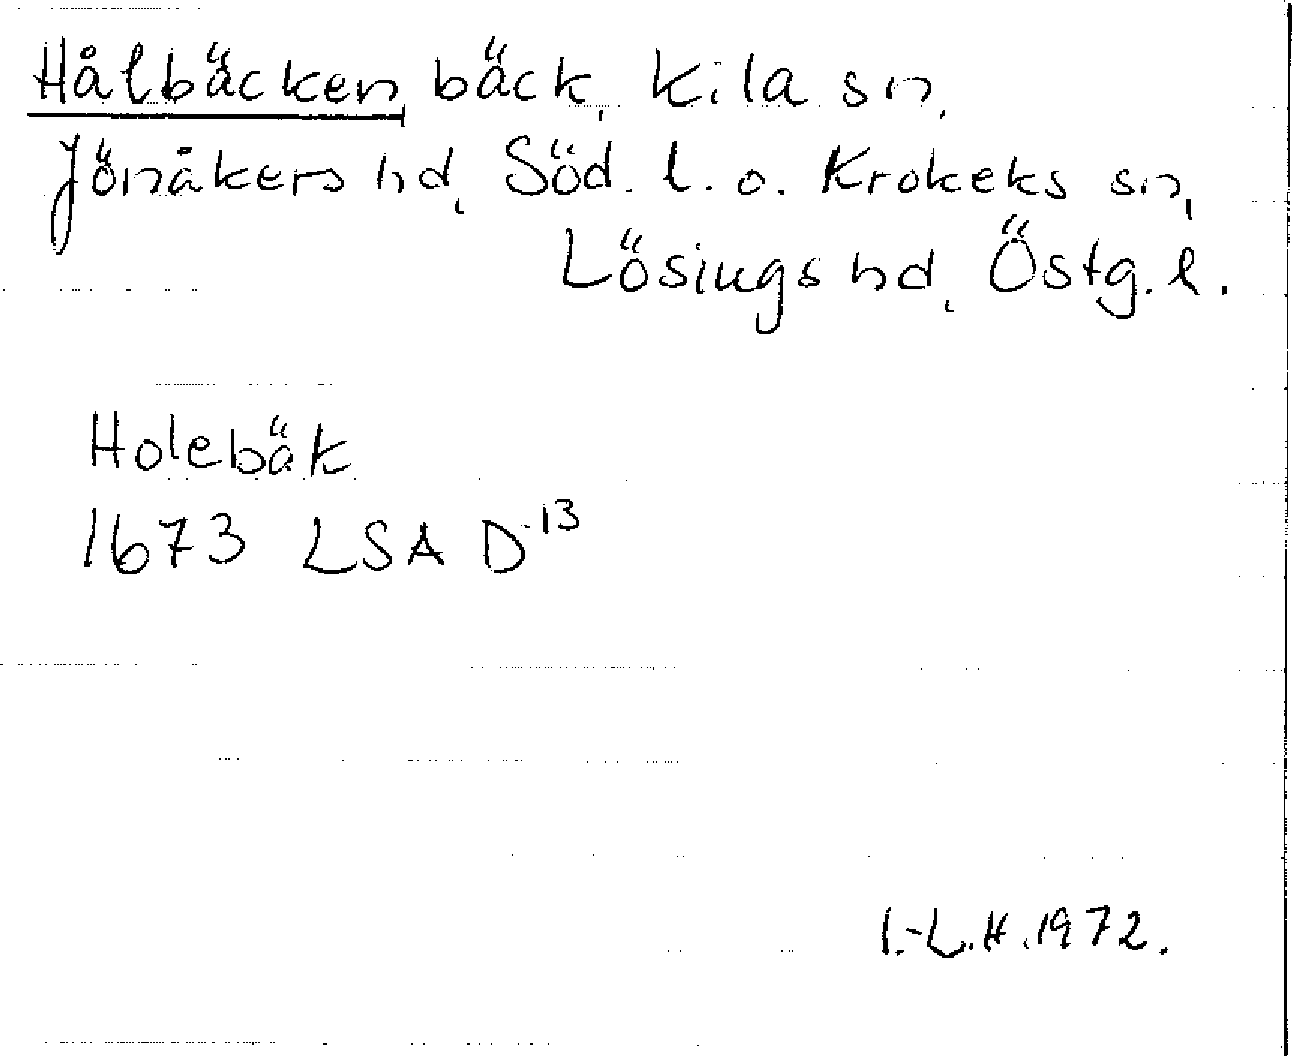 Hålbäcken, bäck, Kila sn,
Jönåkers hd, Söd. l. o. Krokeks sn,
Lösings hd, Östg. l.
Holebäk
1673 LSA D 13
I.-L.H. 1972.